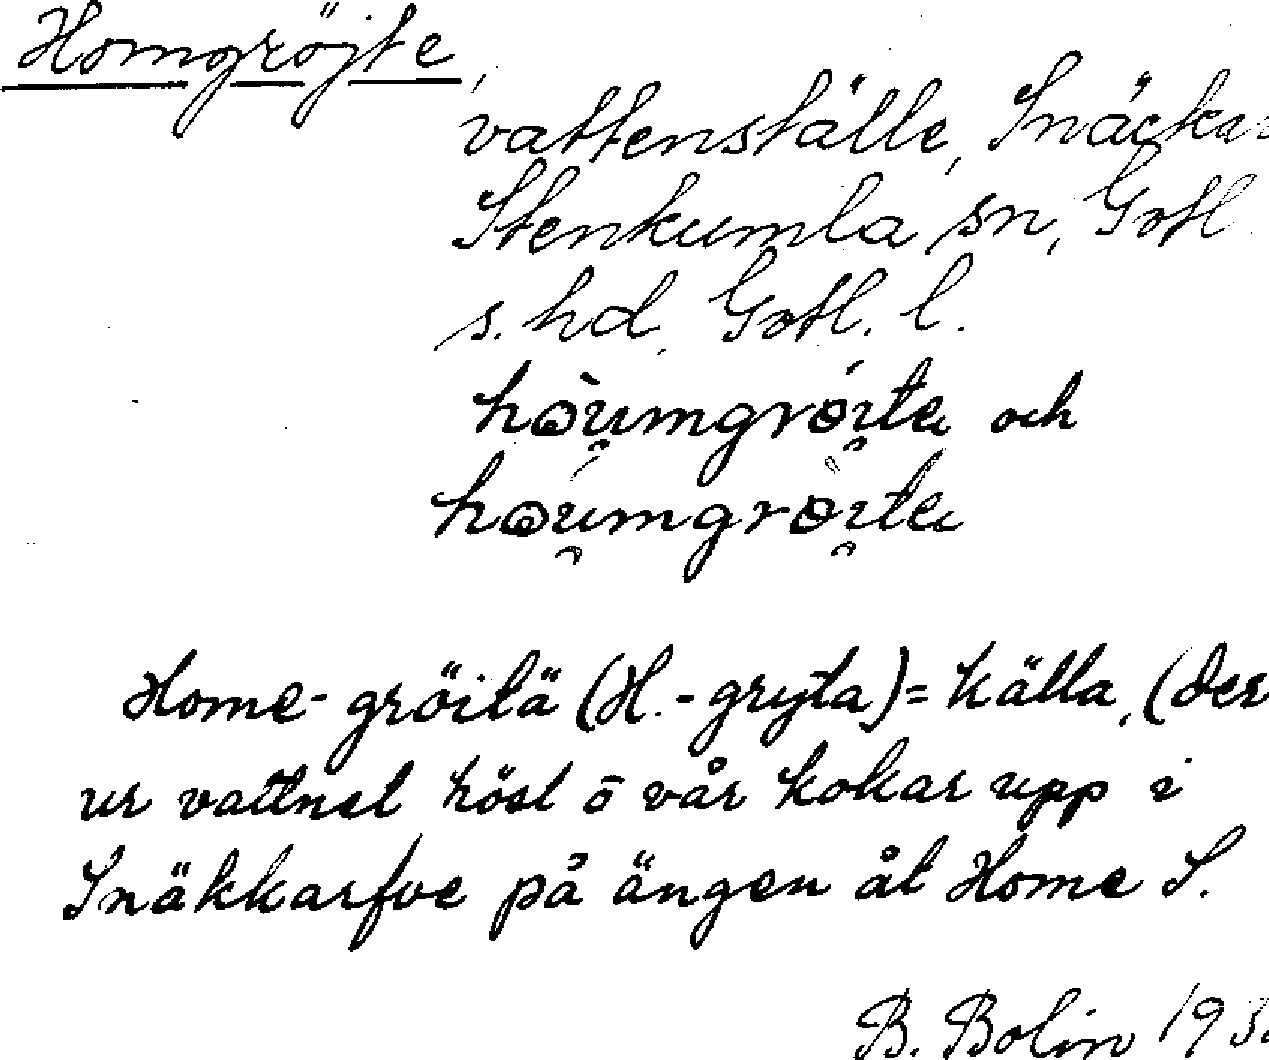 Homgröjte,
vattenställe, Snäckar
Stenkumla sn, Gotl.
s. hd, Gotl. l.
hòu̯mgrói̯te och
hóu̯mgrö̀i̯te
Home-gröitä (H.-gryta) = källa, (der
ur vattnet höst ō vår kokar upp i
Snäkkarfve på ängen åt Home S.
B. Bolin 193